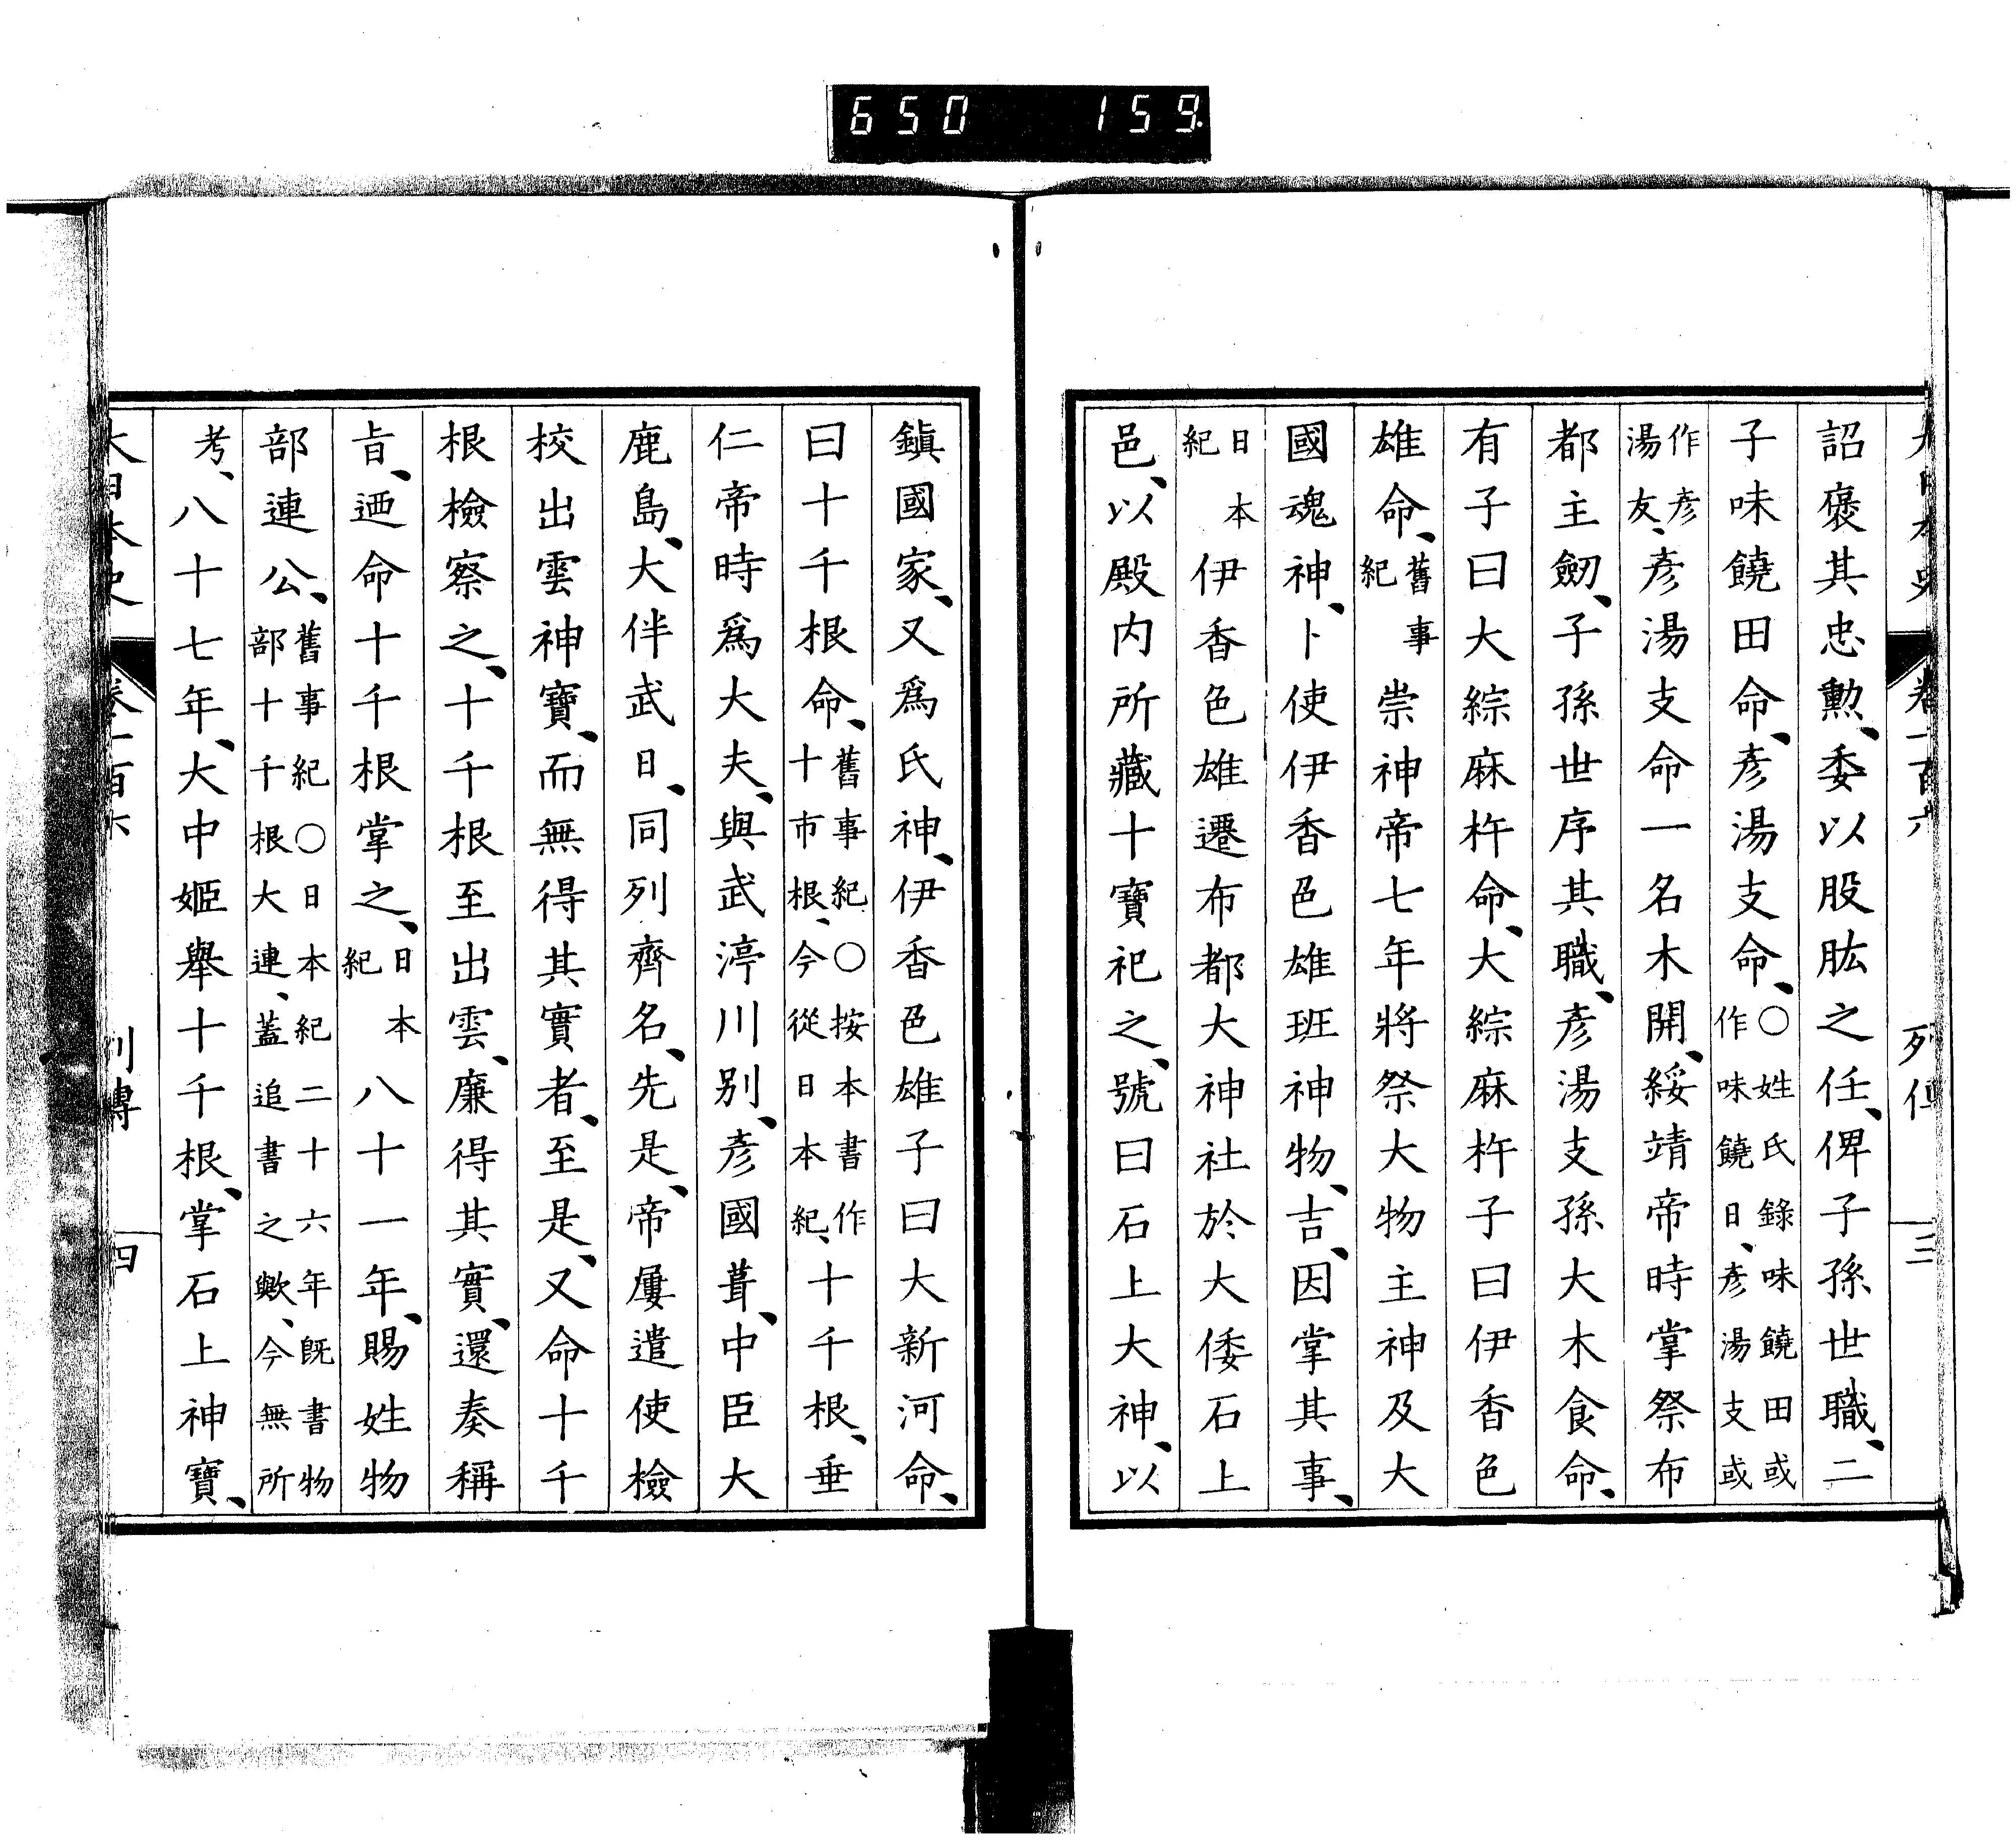 650 159
大日本史 卷一百六 列傳 三
詔褒其忠勲、委以股肱之任、俾子孫世職、二
子味饒田命、彥湯支命、〇姓氏錄味饒田或作味饒日、彥湯支或
作彥湯友、彥湯支命一名木開、綏靖帝時掌祭布
都主劒、子孫世序其職、彥湯支孫大木食命、
有子曰大綜麻杵命、大綜麻杵子曰伊香色
雄命、舊事紀崇神帝七年將祭大物主神及大
國魂神、卜使伊香色雄班神物、吉、因掌其事、
日本紀伊香色雄遷布都大神社於大倭石上
邑、以殿内所藏十寶祀之、號曰石上大神、以
鎭國家、又爲氏神、伊香色雄子曰大新河命、
曰十千根命、舊事紀〇按本書作十市根、今從日本紀、十千根、垂
仁帝時爲大夫、與武渟川別、彥國葺、中臣大
鹿島、大伴武日、同列齊名、先是、帝屢遣使檢
校出雲神寶、而無得其實者、至是、又命十千
根檢察之、十千根至出雲、廉得其實、還奏稱
旨、迺命十千根掌之、日本紀八十一年、賜姓物
部連公、舊事紀〇日本紀二十六年既書物部十千根大連、蓋追書之歟、今無所
考、八十七年、大中姬舉十千根、掌石上神寶、
大日本史 卷一百六 列傳 四